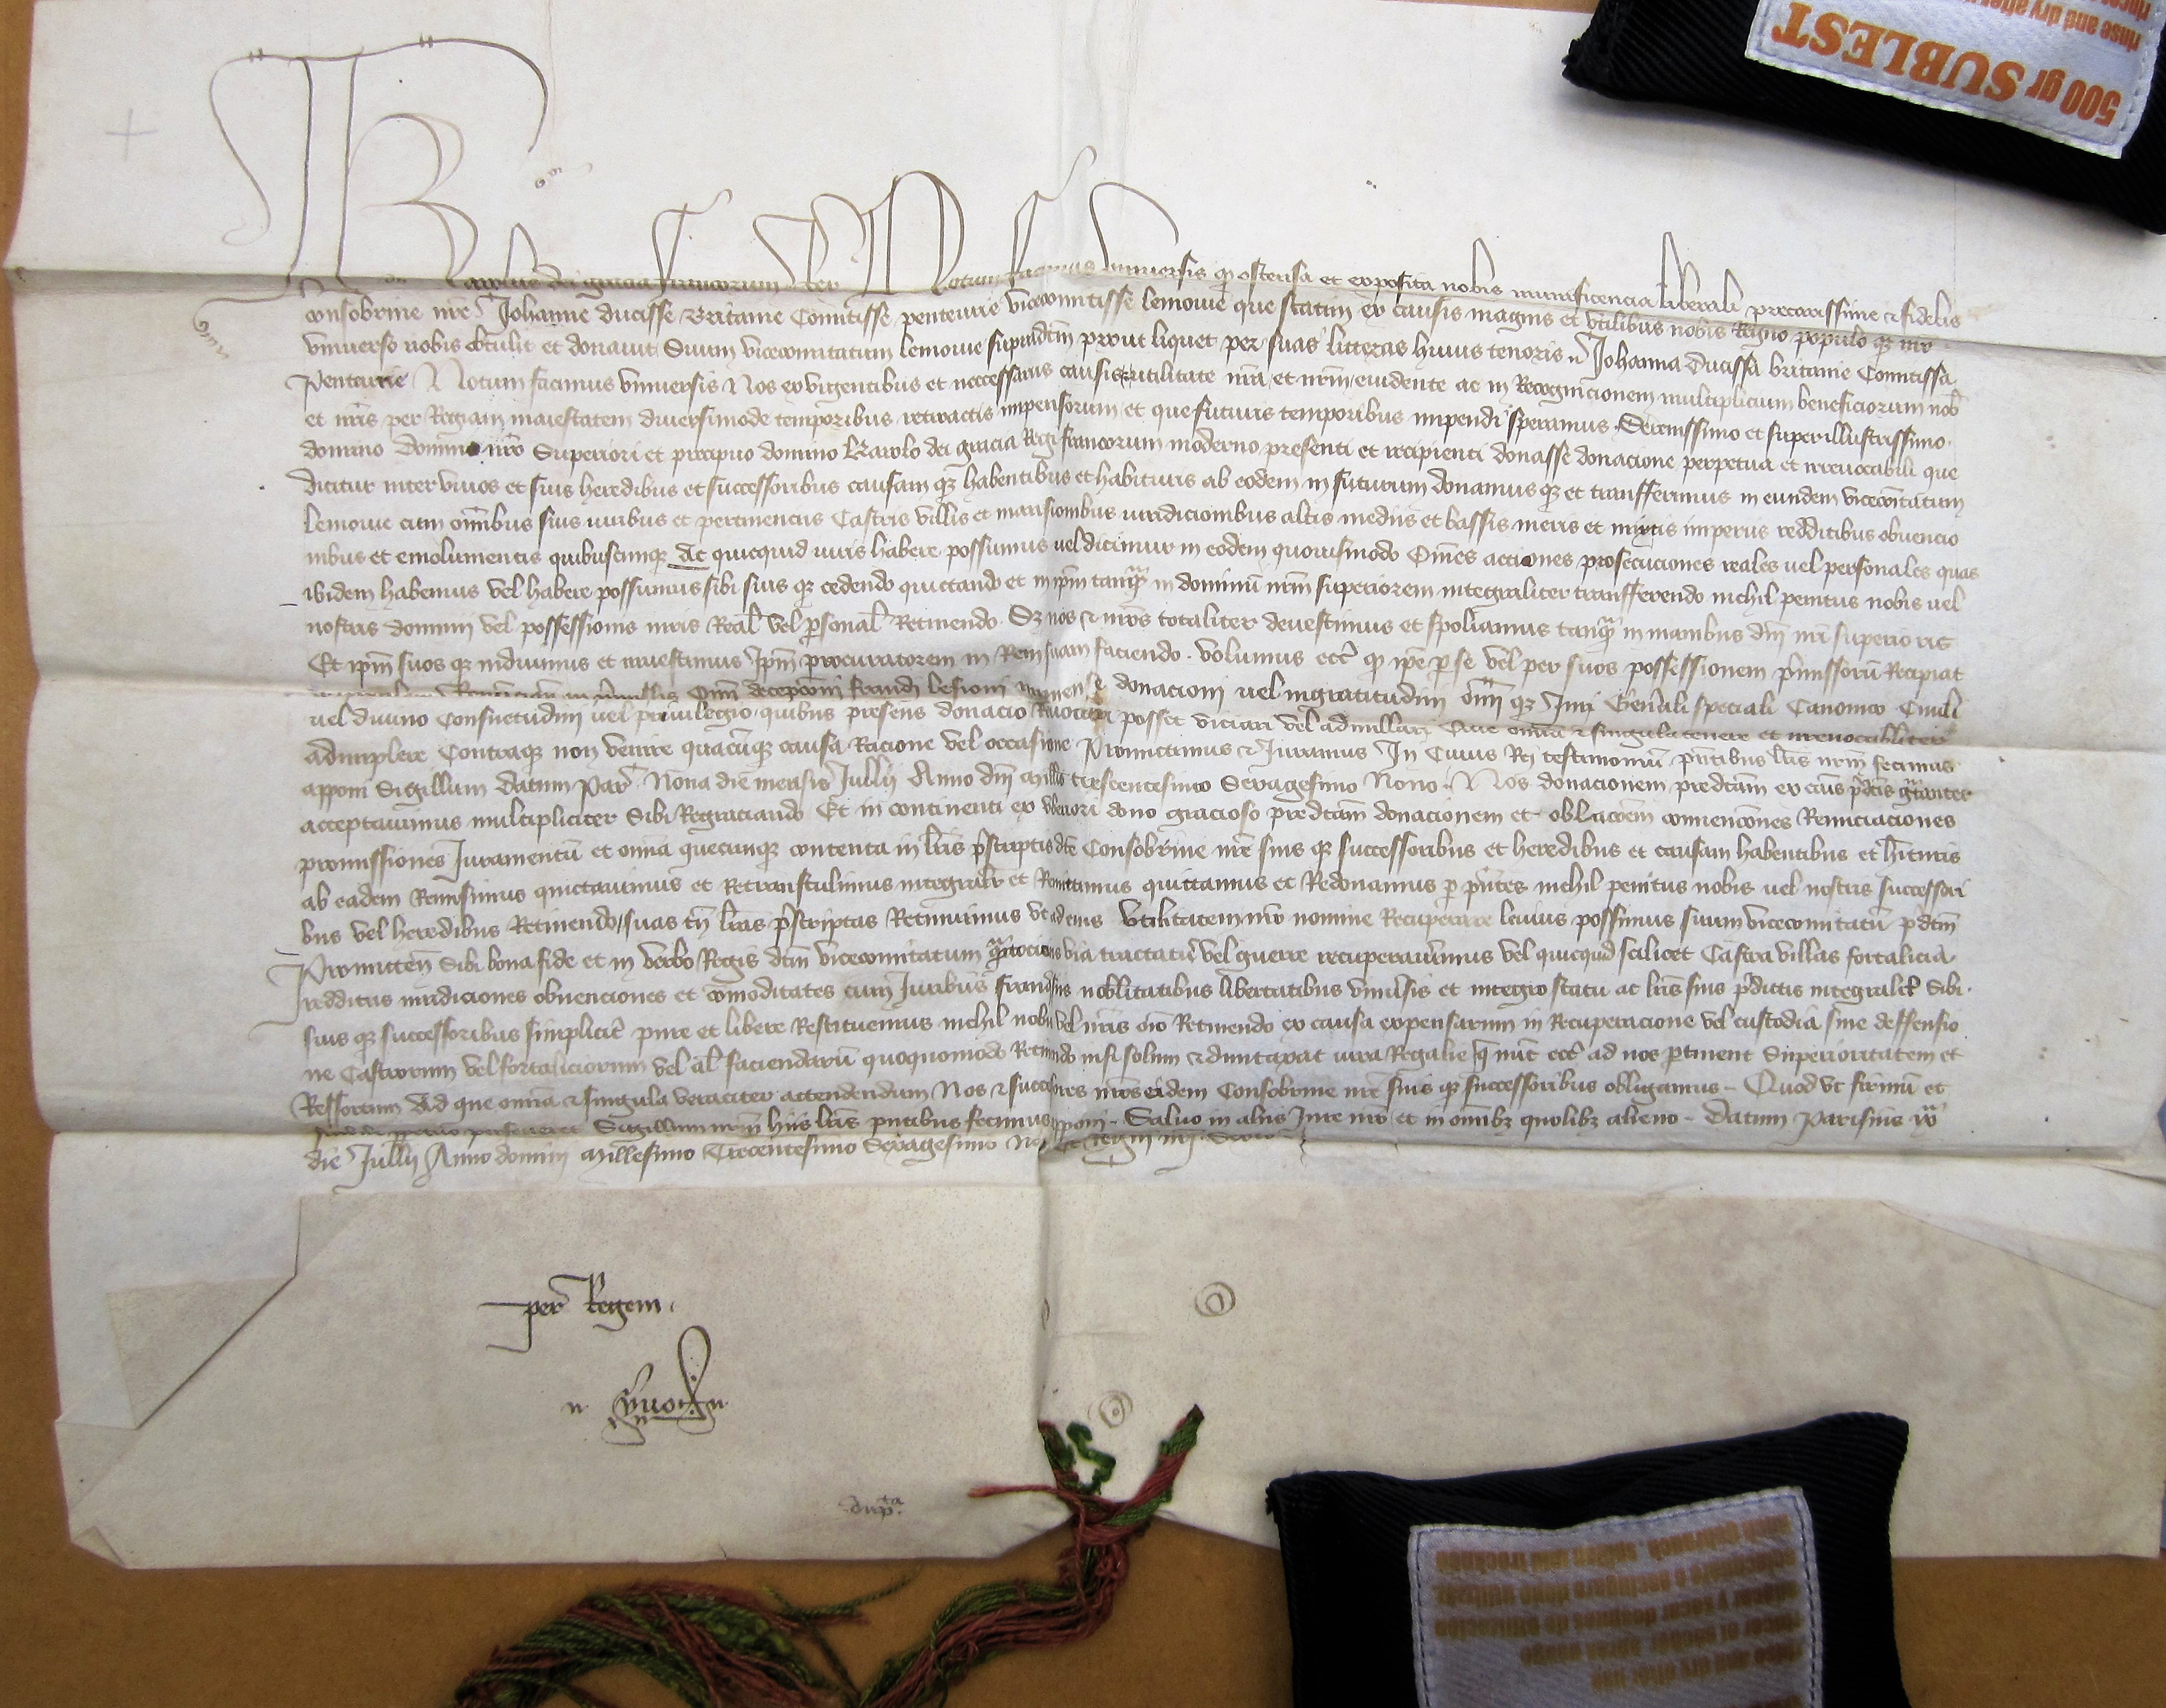 500 gr SUBLEST
rinse and dry after
Karolus dei gracia francorum Rex Notum facimus vniuersis q ostensa et exposita nobis munificencia liberali precarissime & fidelis
consobrine nre Johanne ducisse Britanie Comitisse penteurie vicecomitisse lemouic que statim ex causis magnis et vtilibus nobis Regno populo q nro
vniuerso nobis obtulit et donauit Suum vicecomitatum lemouic supradtm prout liquet per suas litteras huius tenoris Johanna ducissa britanie Comitissa
Penteurie Notum facimus vniuersis Nos ex vrgentibus et necessariis causis utilitate nra et nrm euidente ac in Recognicionem multiplicium beneficiorum nob
et nris per Regiam maiestatem diuersimode temporibus retroactis impensorum et que futuris temporibus impendi speramus Serenissimo et superillustrissimo
domino domino nro Superiori et precipuo domino Karolo dei gracia Regi francorum moderno presenti et recipienti donasse donacione perpetua et irreuocabili que
dicitur inter viuos et suis heredibus et successoribus causam q habentibus et habituris ab eodem in futurum donamus q et transferimus in eundem vicecomitatum
lemouic cum omibus suis iuribus et pertinenciis Castris villis et mansionibus iuridicionibus altis mediis et bassis meris et mixtis imperiis redditibus obuencio
nibus et emolumentis quibuscunq Ac quicquid iuris habere possumus uel dicimur in eodem quouismodo Omes actiones prosecuciones reales uel personales quas
ibidem habemus vel habere possumus sibi suis q cedendo quictando et in ipm tanq in dominu nrm superiorem integraliter transferendo nichil penitus nobis uel
nostris dominii vel possessionis iuris Real vel psonal Retinendo Sz nos & nros totaliter deuestimus et spoliamus tanq in manibus dni nri superioris
Et ipm suos q induimus et inuestimus Ipm procuratorem in Rem suam faciendo volumus ecc q ipe p se vel per suos possessionem pmissoru Recipiat
Omi decepcioni fraudi lesioni donacioni uel ingratitudini omi q Juri Generali speciali Canonico Ciuili
uel diuino Consuetudini uel priuilegio quibus presens donacio Reuocari posset viciari vel adnullari Que omia & singula tenere et irreuocabiliter
adimplere Contraq non venire quacuq causa Racione vel occasione Promittimus & Juramus In Cuius Rei testimoniu pntibus lris nrm fecimus
apponi Sigillum Datum Par Nona die mensis Jullii Anno dni Mill trescentesimo Sexagesimo Nono Nos donacionem predcam ex causis pdcis gratanter
acceptauimus multipliciter Sibi Regraciando Et in continenti ex vberiori dono gracioso predcam donacionem et oblacoem conuencones Renunciaciones
promissiones Juramentu et omia quecunq contenta in lris pscriptis dce Consobrine nre suis q successoribus et heredibus et causam habentibus et hituris
ab eadem Remisimus quictauimus et Retranstulimus integralr et Remittimus quittamus et Redonamus p pntes nichil penitus nobis uel nostris successori
bus vel heredibus Retinendo suas tn lras pscriptas Retinuimus vt ad eius Vtilitatem nro nomine Recuperare leuius possimus suum vicecomitatu pdtm
Promitten Sibi bona fide et in verbo Regis dcm vicecomitatum quatociens via tractatus vel guerre recuperauerimus vel quicquid scilicet Castra villas fortalicia
redditus iuridiciones obuenciones et comoditates cum Juribus franchisiis nobilitatibus libertatibus vniuersis et integro statu ac lris suis pdictis integraliter Sibi
suis q successoribus simpliciter pure et libere Restituemus nichil nobis vel nris oio Retinendo ex causa expensarum in Recuperacione vel custodia siue deffensio
ne Castrorum vel fortaliciorum vel al faciendaru quoquomodo Retinendo nisi solum & duntaxat iura Regalie q nuc ecc ad nos ptinent Superioritatem et
Ressortum Ad que omia & singula veraciter attendendum Nos & successores nros eidem Consobrine nre suis q successoribus obligamus Quod vt firmu et
Sigillum nrm hiis lris pntibus fecimus apponi Saluo in aliis Jure nro et in omibz quolibz alieno Datum Parisius ix
die Jullii Anno domini Millesimo Trecentesimo Sexagesimo Nono
per Regem
Yuo
dupta